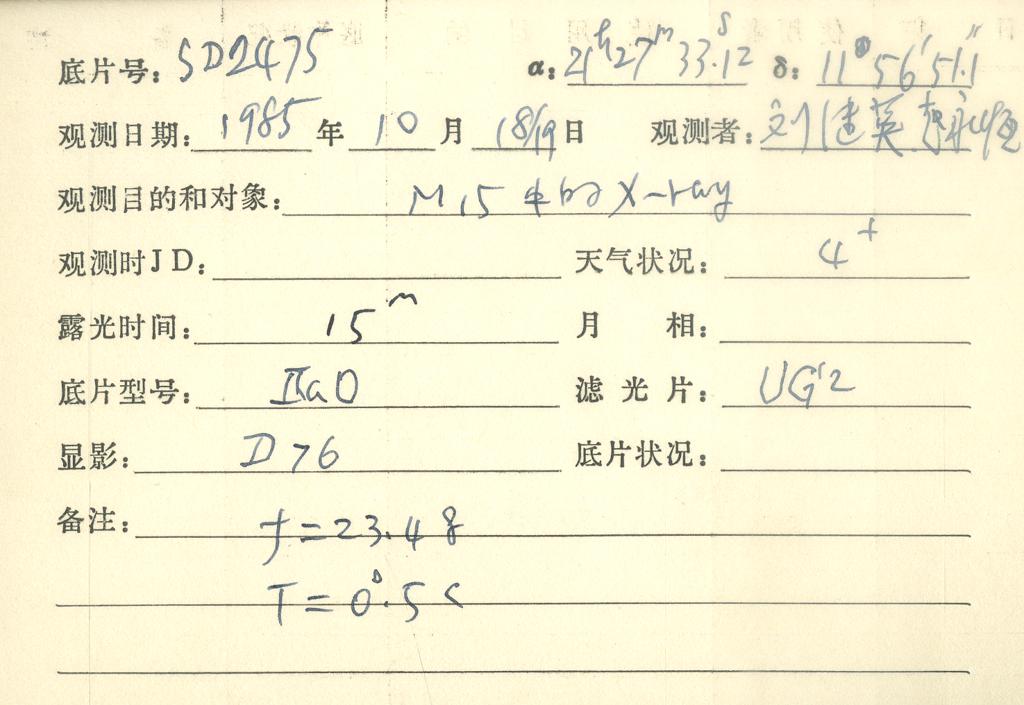 底片号: SD2475 α: 21ʰ27ᵐ33ˢ.12 δ: 11°56′51.1″
观测日期: 1985 年 10 月 18/19 日 观测者: 刘 英
观测目的和对象: M15 中的 X-ray
观测时JD: 天气状况: 4⁺
露光时间: 15ᵐ 月 相:
底片型号: IIaO 滤光片: UG2
显影: D76 底片状况:
备注: f=23.48
T=0°.5 C